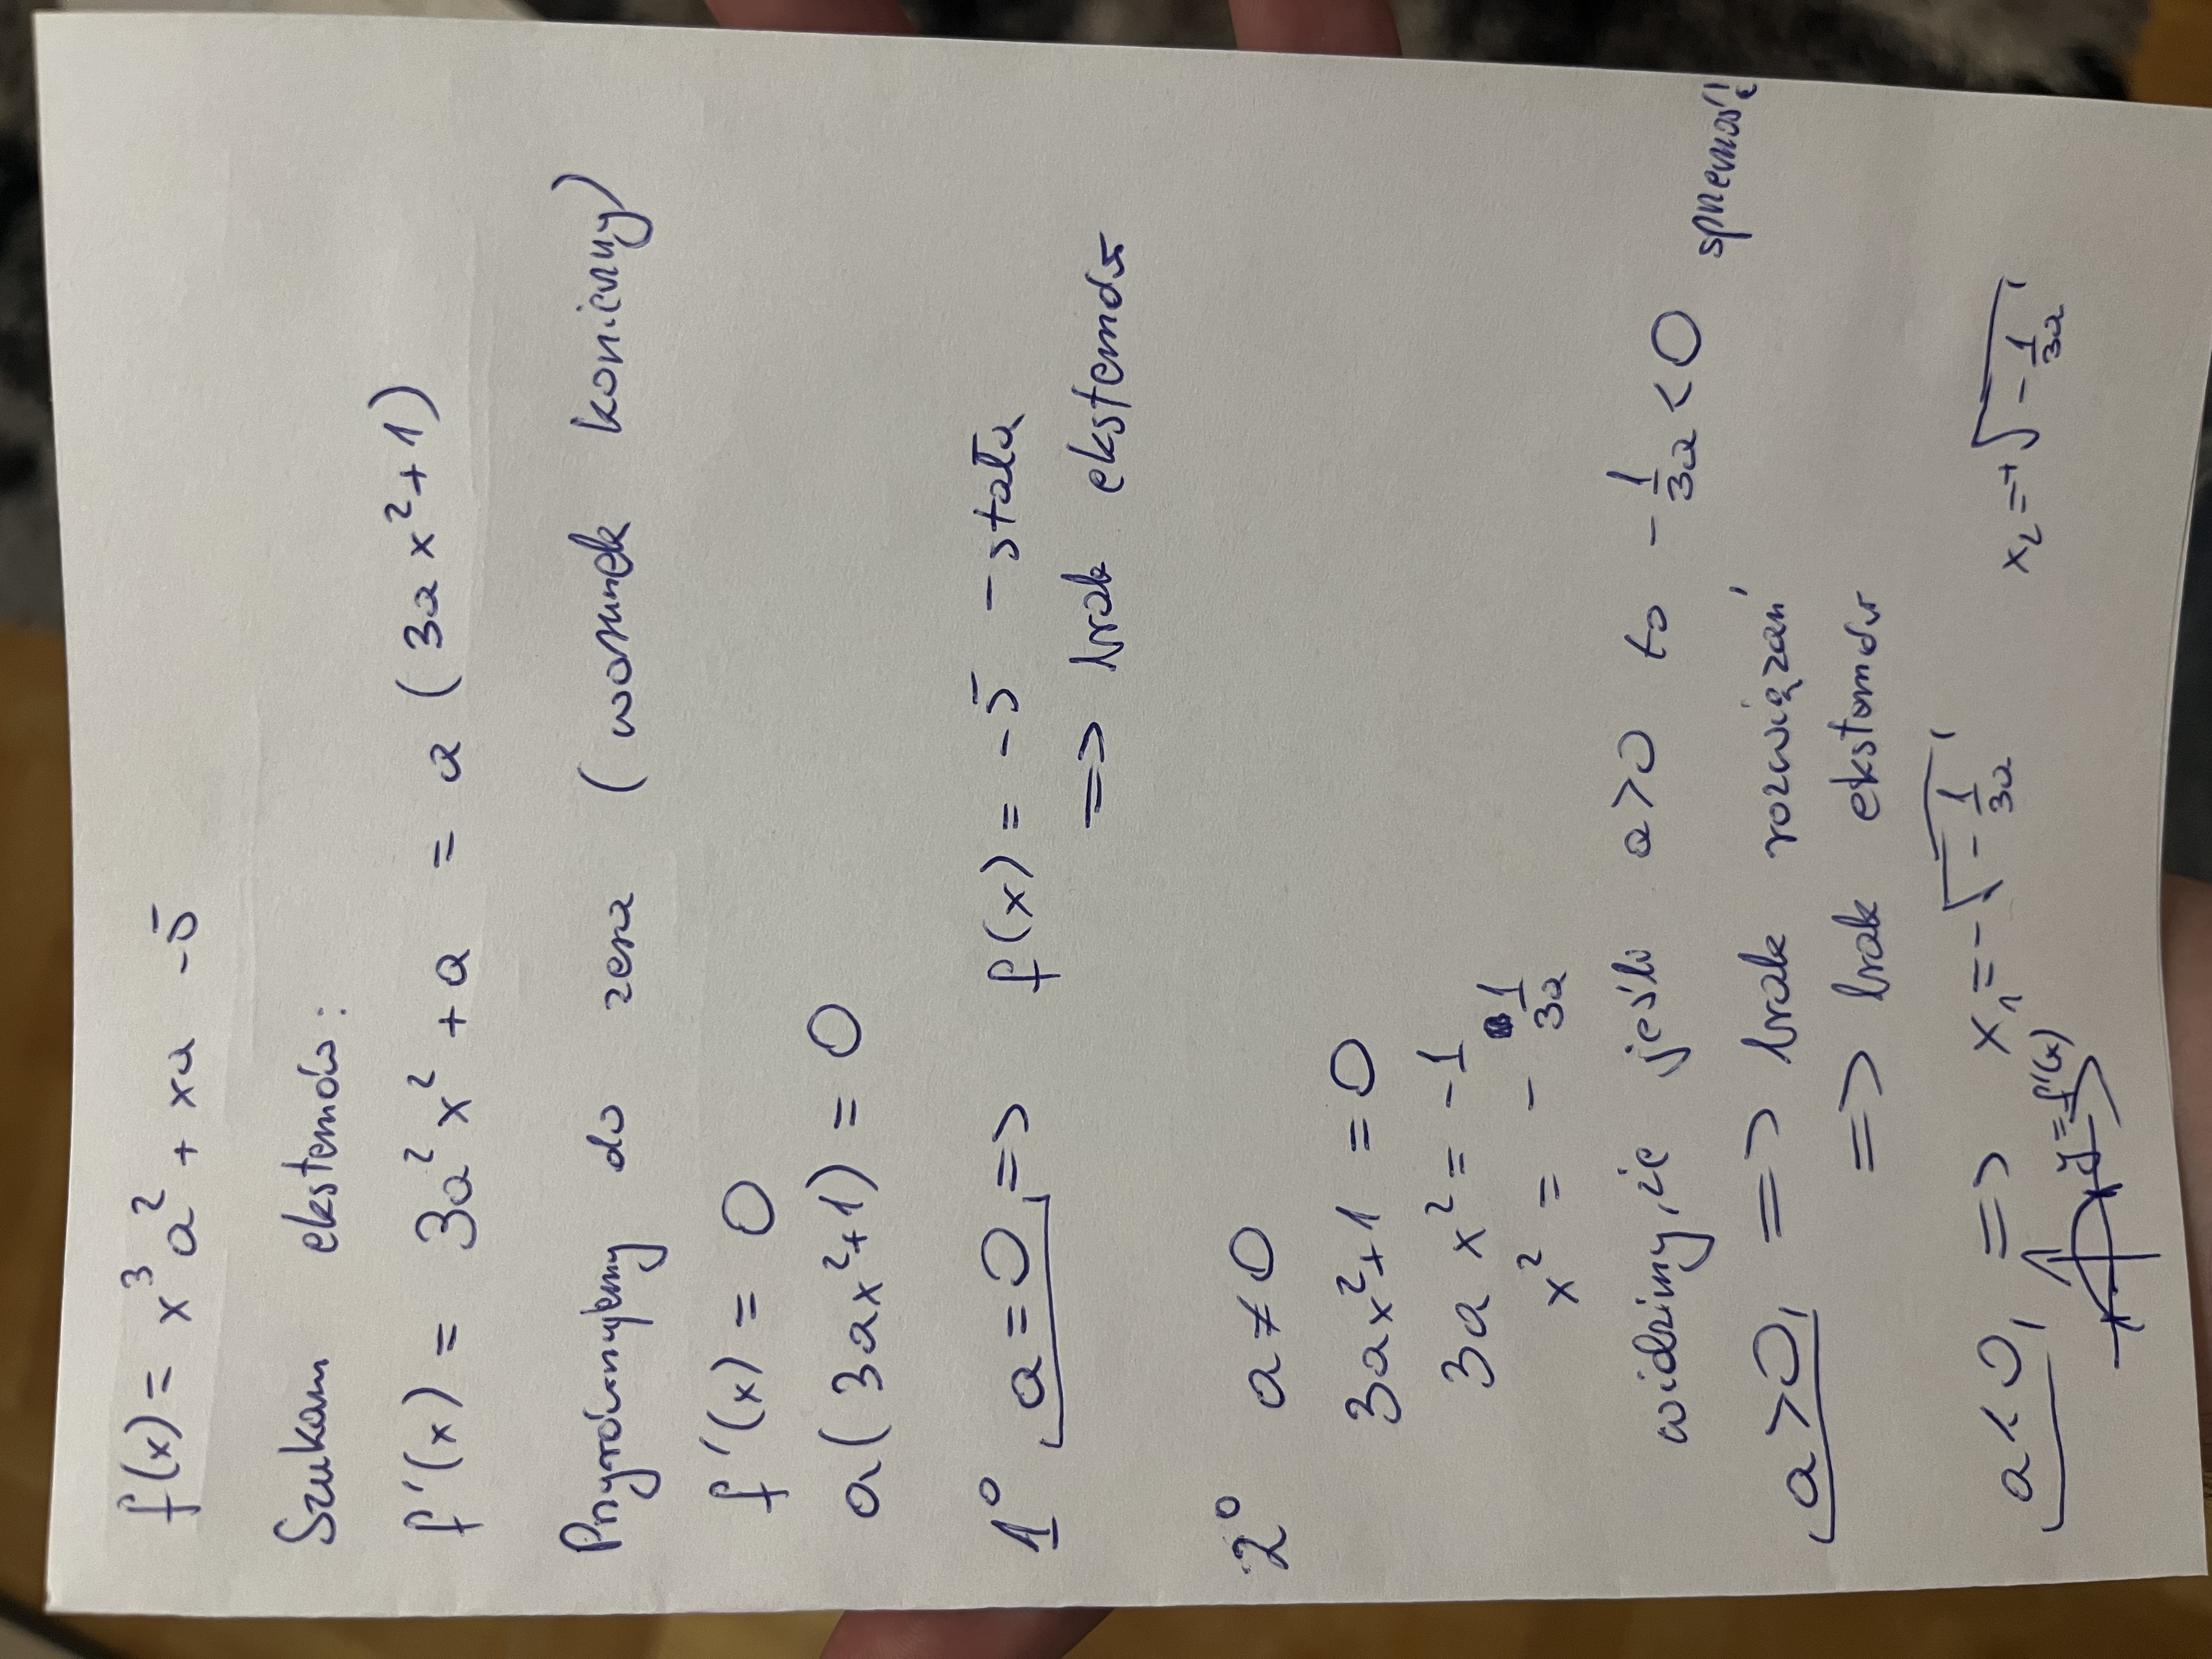 f(x) = x³a² + xa - 5
Szukam ekstemów:
f'(x) = 3a²x² + a = a (3ax²+1)
Przyrównujemy do zera (warunek konieczny)
f'(x) = 0
a(3ax²+1) = 0
1° a=0 => f(x) = -5 - stała
=> brak ekstemów
2° a≠0
3ax²+1 = 0
3ax² = -1
x² = - 1/3a
widzimy, że jeśli a>0 to - 1/3a < 0 sprzeczność
a>0 => brak rozwiązań
=> brak ekstemów
a<0 => x₁ = -√(- 1/3a) x₂ = +√(- 1/3a)
y=f'(x)